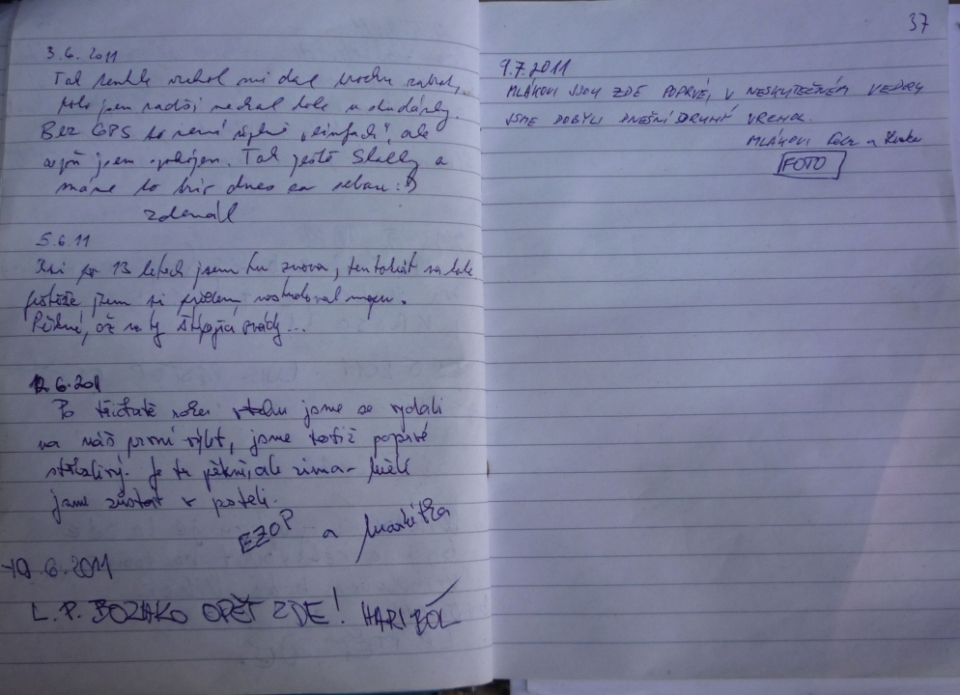 3.6.2011
Tak tenhle vrchol mi dal trochu zabrat,
kolo jsem radši nechal dole u studánky.
Bez GPS to není úplně "einfach", ale
jsem spokojen. Tak ještě Skalky a
máme to hic dnes za sebou :)
zdenál
5.6.11
po 13 letech jsem tu znova, tentokrát na kole
jsem si předem nastudoval mapu.
Pěkné, až na ty štípající
12.6.2011
Po třičtvrtě roku vztahu jsme se vydali
na náš první výlet, jsme totiž poprvé
Je tu pěkně, ale zima - měli
jsme zůstat v posteli.
EZOP a Markétka
19.6.2011
L.P. BOZAKO OPĚT ZDE! HARIBÓL
37
9.7.2011
MLÁKOVI JSOU ZDE POPRVÉ, V NESKUTEČNÉM VEDRU
JSME DOBYLI DNEŠNÍ DRUHÝ VRCHOL.
MLÁKOVI a
FOTO